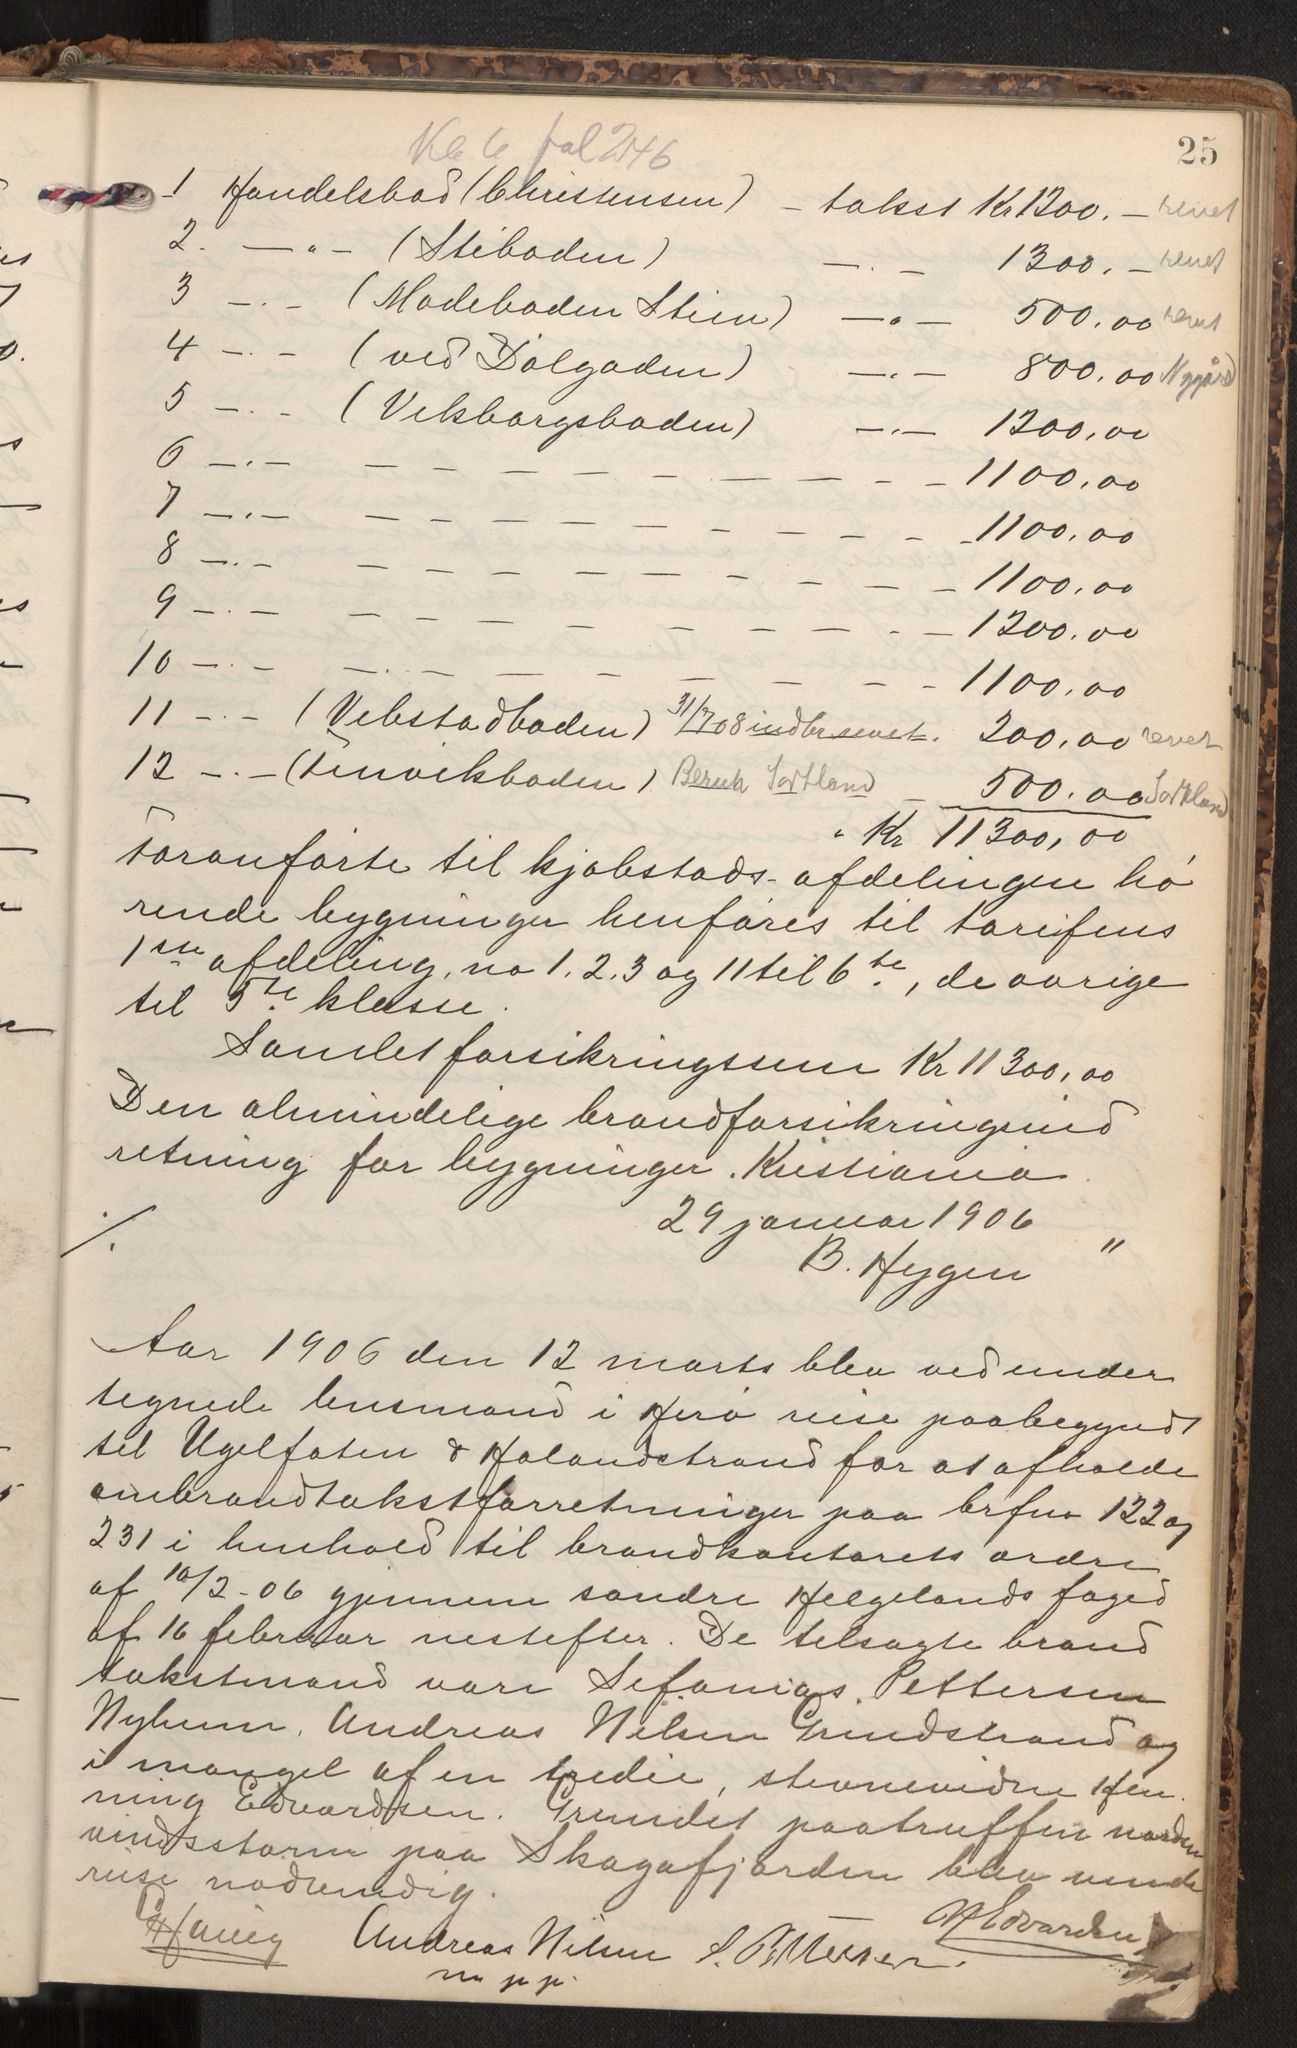 25
fol 246
1 Handelsbod (Christensen) – takst Kr 1200. – revet
2. – " – (Stiboden) – . – 1300. – revet
3 – . – (Madeboden Stien) – " – 500.00 revet
4 – . – (ved Dölgaden) – . – 800.00 Nygård
5 – . – (Viksborgsboden) – . – 1200,00
6 – . – – – – – – – – – – 1100.00
7 – . – – – – – – – – – – 1100.00
8 – . – – – – – – – – – – 1100.00
9 – . – – – – – – – – – – 1200.00
10 – . – – . – – – – – – – – 1100.00
11 – . – (Vebstadboden) 31/7 08 indbr revet. 200,00 revet
12 – . – (Finvikboden) Sortland – 500.00 Sortland
" Kr 11300,00
Foranförte til kjöbstads-afdelingen hö
rende bygninger henföres til tarifens
1ste afdeling, no 1. 2. 3 og 11 til 6te, de övrige
til 5te klasse.
Samlet forsikringssum Kr 11300,00
Den almindelige brandforsikringsind
retning for bygninger. Kristiania
29 januar 1906
./. B. Hygen "
Aar 1906 den 12 marts blev ved under
tegnede lensmand i Herö reise paabegyndt
til Ugelfaten & Halandstrand for at afholde
ombrandtakstforretninger paa brfno 122 og
231 i henhold til brandkontorets ordre
af 10/2-06 gjennem söndre Helgelands foged
af 16 februar nestefter. De tilsagte brand
takstmænd vare Sefanias Pettersen
Nyheim. Andreas Nilsen Grindstrand og
i mangel af en tredie, stevnevidne Hen
ning Edvardsen. Grundet paatruffen norden
vindsstorm paa Skagafjorden blev vende
reise nödvendig.
Andreas Nilsen S. Pettersen. H Edvardsen
m p p.